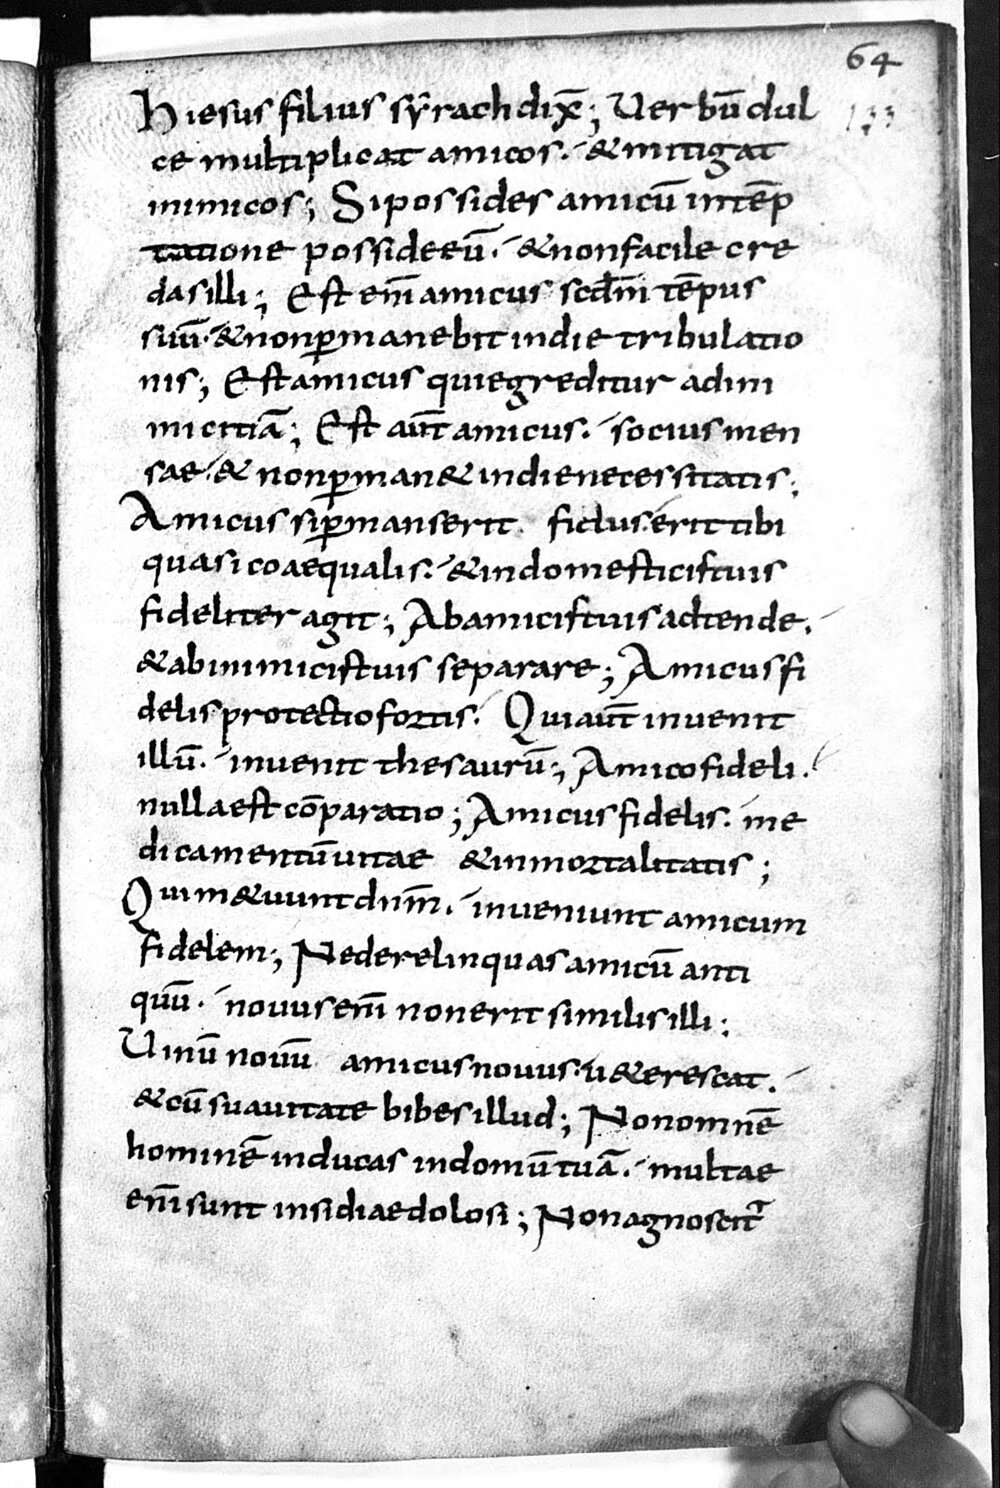 64
133
Hiesus filius syrach dix̄; Uerbū dul
ce multiplicat amicos. & mitigat
inimicos; Si possides amicū in tēp
tatione posside eū. & non facile cre
das illi; Est enī amicus scdm̄ tēpus
suū. & non ꝑmanebit in die tribulatio
nis; Est amicus qui egreditur ad ini
micitiā; Est aut̄ amicus. socius men
sae. & non ꝑman& in die necessitatis;
Amicus si ꝑmanserit fidus. erit tibi
quasi coaequalis. & in domesticis tuis
fideliter agit; Ab amicis tuis adtende.
& ab inimicis tuis separare; Amicus fi
delis protectio fortis. Qui aut̄ inuenit
illū. inuenit thesaurū; Amico fideli.
nulla est cōparatio; Amicus fidelis. me
dicamentū uitae & inmortalitatis;
Qui m&uunt dnm̄. inueniunt amicum
fidelem; Ne derelinquas amicū anti
quū. nouus enī non erit similis illi;
Uinū nouū amicus nouus. u&erescat.
& cū suauitate bibes illud; Non omnē
hominē inducas in domū tuā. multae
enī sunt insidiae dolosi; Non agnoscit᷑